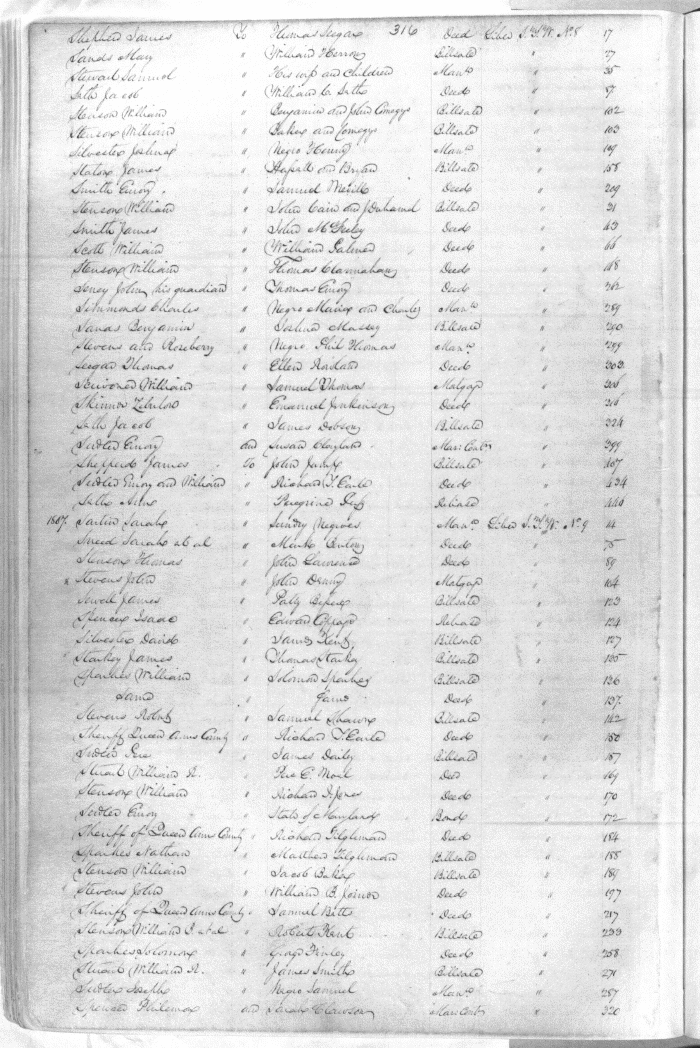 316
Shepherd James To Thomas Seegar Deed Liber S.T.W. No 8 17
Sands Mary " William Herron Billsale " 27
Stewart Samuel " His wife and children Manu " 35
Seth Jacob " William C. Seth Deed " 87
Stenson William " Benjamin and John Comegys Billsale " 102
Stenson William " Baker and Comegys Billsale " 103
Silvester Joshua " Negro Manu " 109
Staton James " and Bryan Billsale " 158
Smith Emory " Samuel Deed " 209
Stenson William " John Cain and Billsale " 31
Smith James " John Deed " 43
Scott William " William Deed " 66
Stenson William " Thomas Deed "
Seney John his guardian " Thomas Emory Deed " 262
Simmonds Charles " Negro and Charles Manu " 289
Sands Benjamin " Joshua Massey Billsale " 290
Stevens and Roseberry " Negro Phil Thomas Manu " 299
Seegar Thomas " Ellen Deed " 303
William " Samuel Thomas "
Skinner Zebulon " Emanuel Jenkinson Deed " 316
Seth Jacob " James Dobson Billsale " 324
Sudler Emory and Susan Clayland Mari Contr " 399
Shepherd James To John Billsale " 407
Sudler Emory and William " Richard T. Earle Deed " 434
Seth Anne " Peregrine " 440
1807. Sarah " Sundry Negroes Manu Liber S.T.W. No 9 14
Sneed Sarah et al " Deed " 75
Stenson Thomas " John Deed " 89
Stevens John " John Denny " 104
Sewell James " Billsale " 123
Spencer Isaac " Edward " 124
Silvester David " James Kent Billsale " 127
Starkey James " Thomas Starkey Billsale " 135
Sparkes William " Solomon Sparkes Billsale " 136
Same " Same Deed " 137
Stevens Robert " Samuel Billsale " 142
Sheriff Queen Anns County " Richard T. Earle Deed " 150
Sudler " James Daily Billsale " 157
Stuart William R. " Deed " 169
Stenson William " Richard I. Jones Deed " 170
Sudler Emory " State of Maryland Bond " 172
Sheriff of Queen Anns County " Richard Tilghman Deed " 184
Sparkes Nathan " Matthew Tilghman Billsale " 188
Stenson William " Jacob Baker Billsale " 189
Stevens John " William B. Deed " 197
Sheriff of Queen Anns County " Samuel Deed " 217
Stenson William et al " Robert Kent Billsale " 233
Sparkes Solomon " Finley Deed " 258
Stuart William R. " James Smith Billsale " 271
Sudler Joseph " Negro Samuel Manu " 287
Spencer Philemon and Sarah Clawson Mari Contr " 320